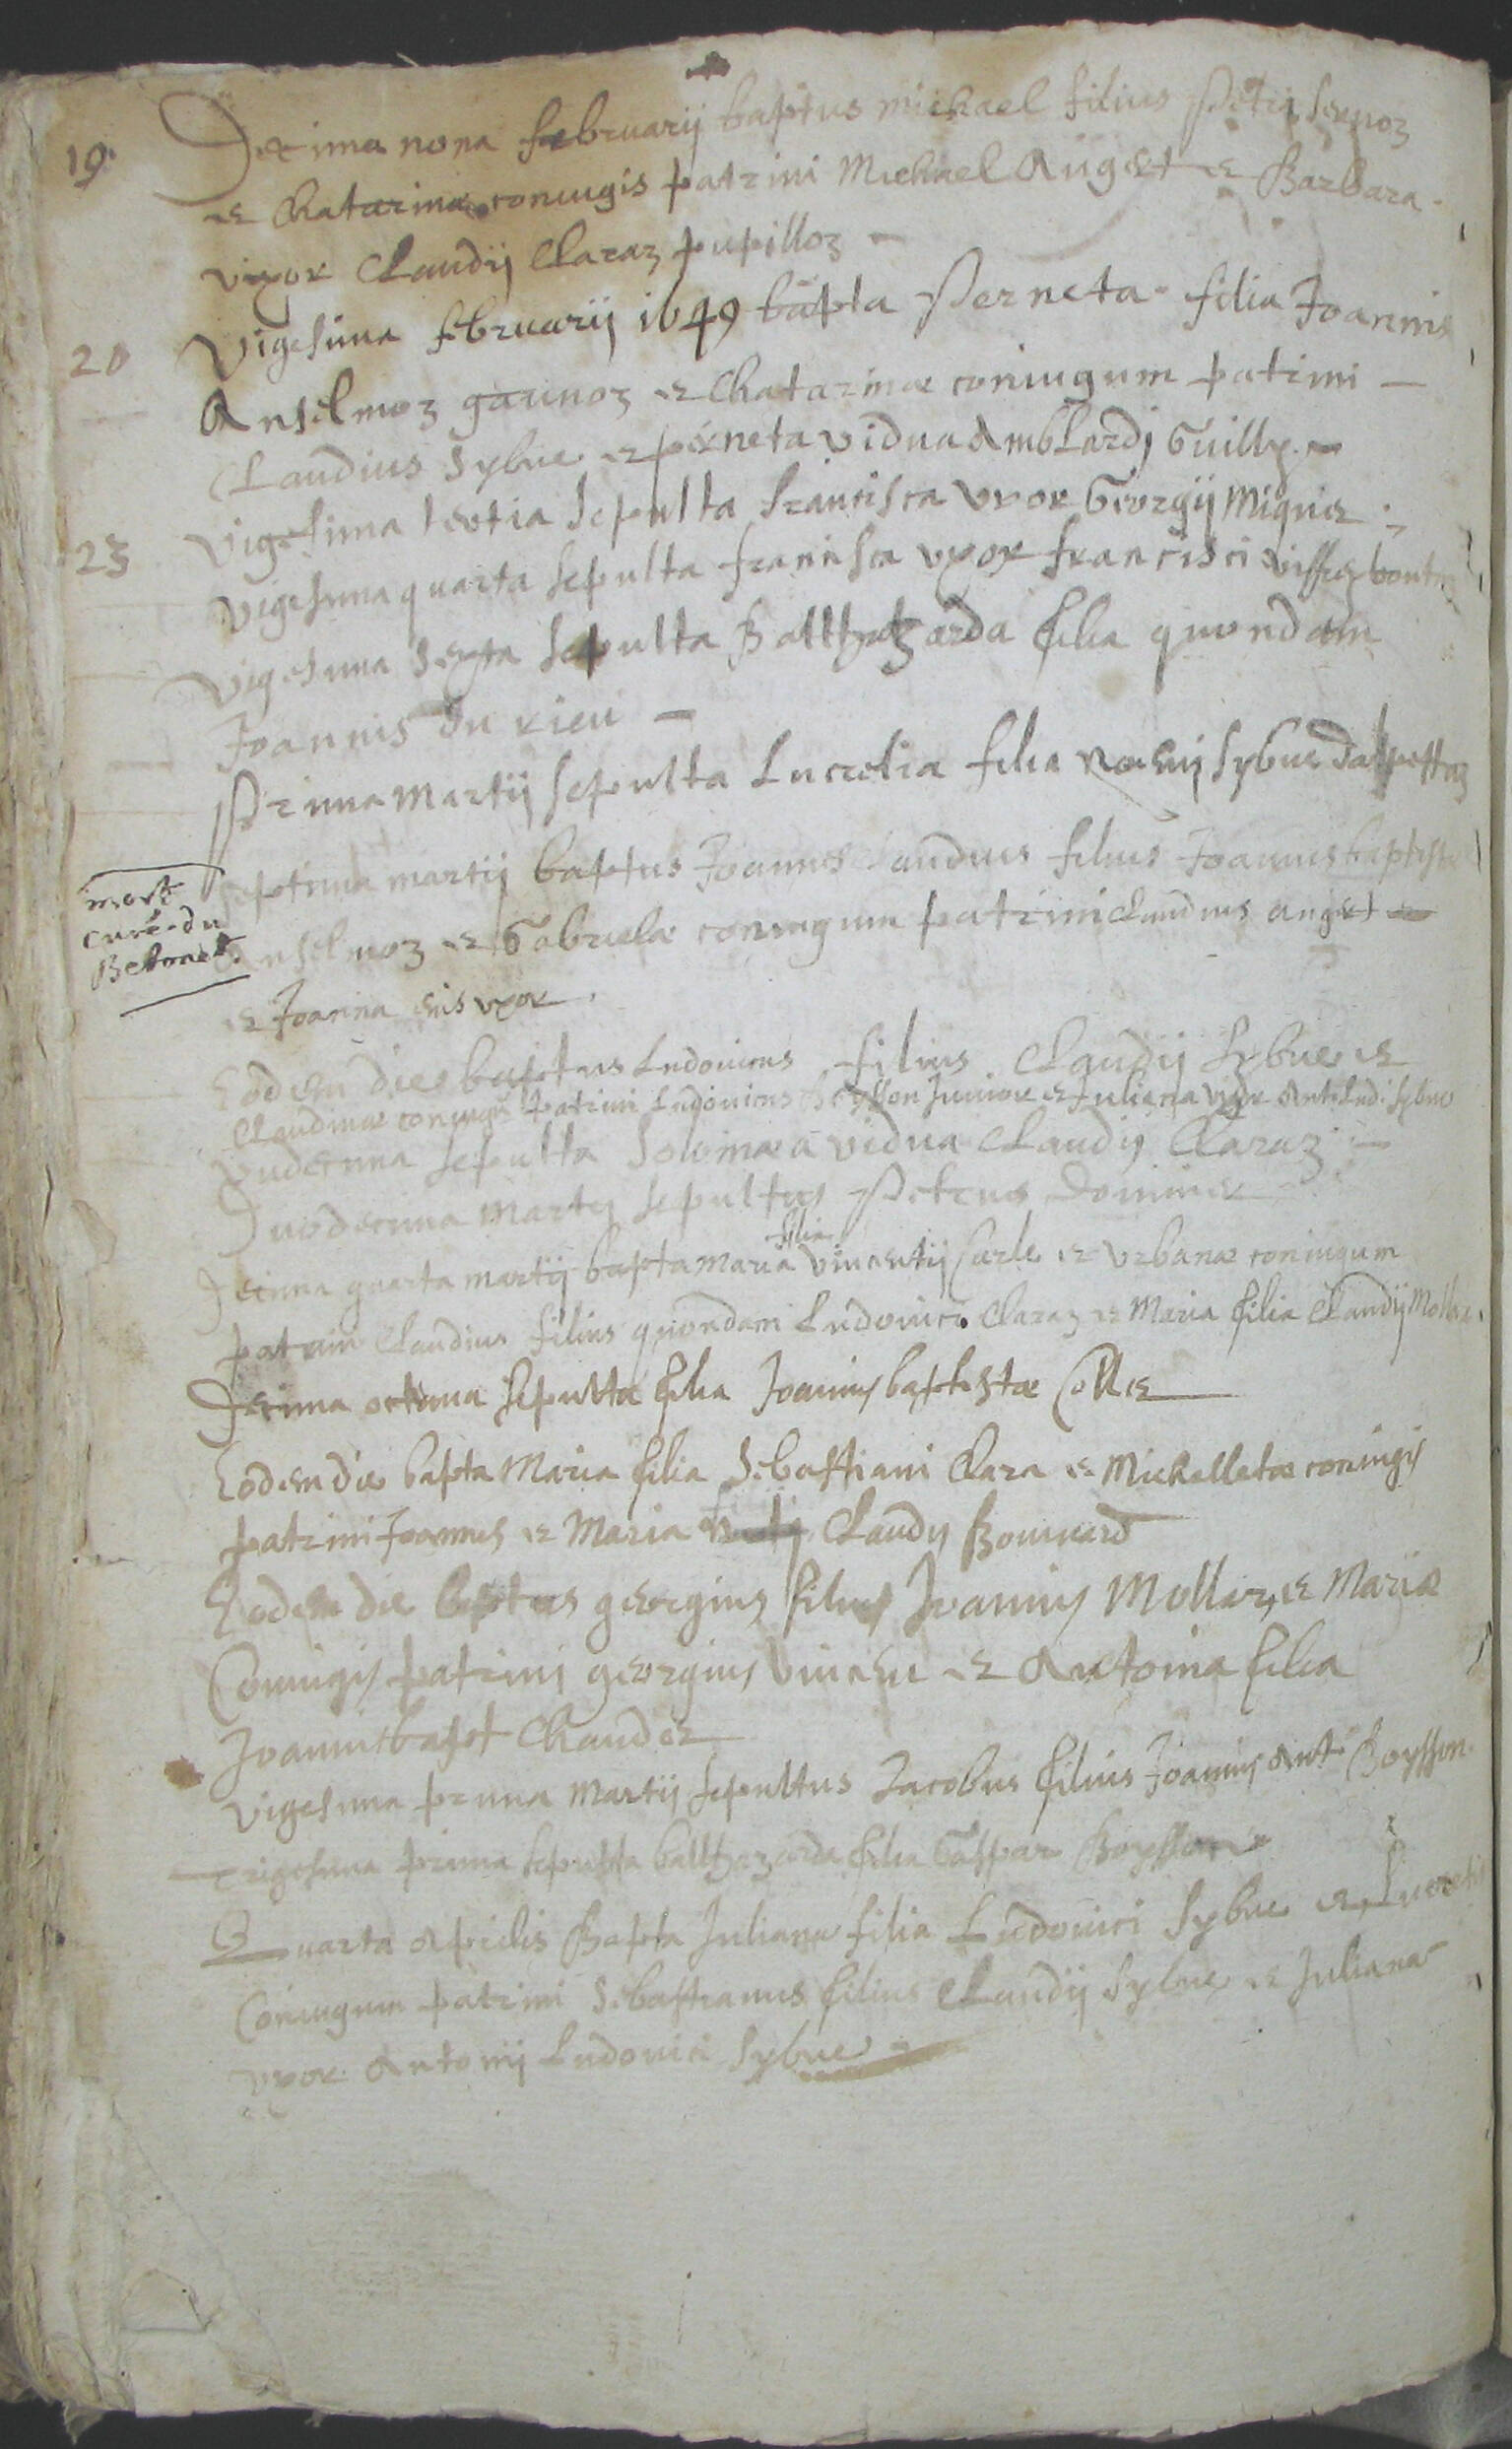 19. Decima nona februarij baptus michael filius Petri
et Chatarinæ coniugis patrini Michael Auget et Barbara
uxor Claudij Claraz pupilloz
20 Vigesima februarij 1649 bapta Perneta filia Joannis
Anselmoz gaunoz et Chatarinæ coniugum patrini
Claudius Sybue et perneta vidua Amblardj Guilly
23 Vigesima tertia sepulta francisca uxor Georgij Miquer
Vigesima quarta sepulta francisca uxor francisci
Vigesima sexta sepulta Balthazarda filia quondam
Joannis du rieu
Prima Martij sepulta Lucretia filia Sybue
mort
curé du
Betonet
Septima martij baptus Joannes Claudius filius Joannis baptistæ
Anselmoz et Gabrielæ coniugum patrini Claudius auget
et Joanna eius uxor
Eodem die baptus Ludouicus filius Claudij Sybue et
Claudinæ coniugis patrini Ludouicus Boysson Junior et Juliana uxor Ant. Lud. Sybue
Undecima sepulta vidua Claudij Claraz
Duodecima Martij sepultus Petrus Dominer
Decima quarta martij bapta Maria filia Vincentij Carle et Urbanæ coniugum
patrini Claudius filius quondam Ludouici Claraz et Maria filia Claudij
Decima octaua sepulta filia Joannis baptistæ Coller
Eodem die bapta Maria filia Sebastiani Clara et Michelletæ coniugis
patrini Joannes et Maria Claudij Bouuard
Eodem die baptus georgius filius Joannis Mollier et Mariæ
Coniugis patrini georgius et Antonia filia
Joannis bapt Chauder
Vigesima prima Martij sepultus Jacobus filius Joannis Ant. Boysson
Trigesima prima sepulta balthazarda filia Gaspar Boysson
Quarta Aprilis Bapta Juliana filia Ludouici Sybue et
Coniugum patrini Sebastianus filius Claudij Sybue et Juliana
uxor Antonij Ludouici Sybue